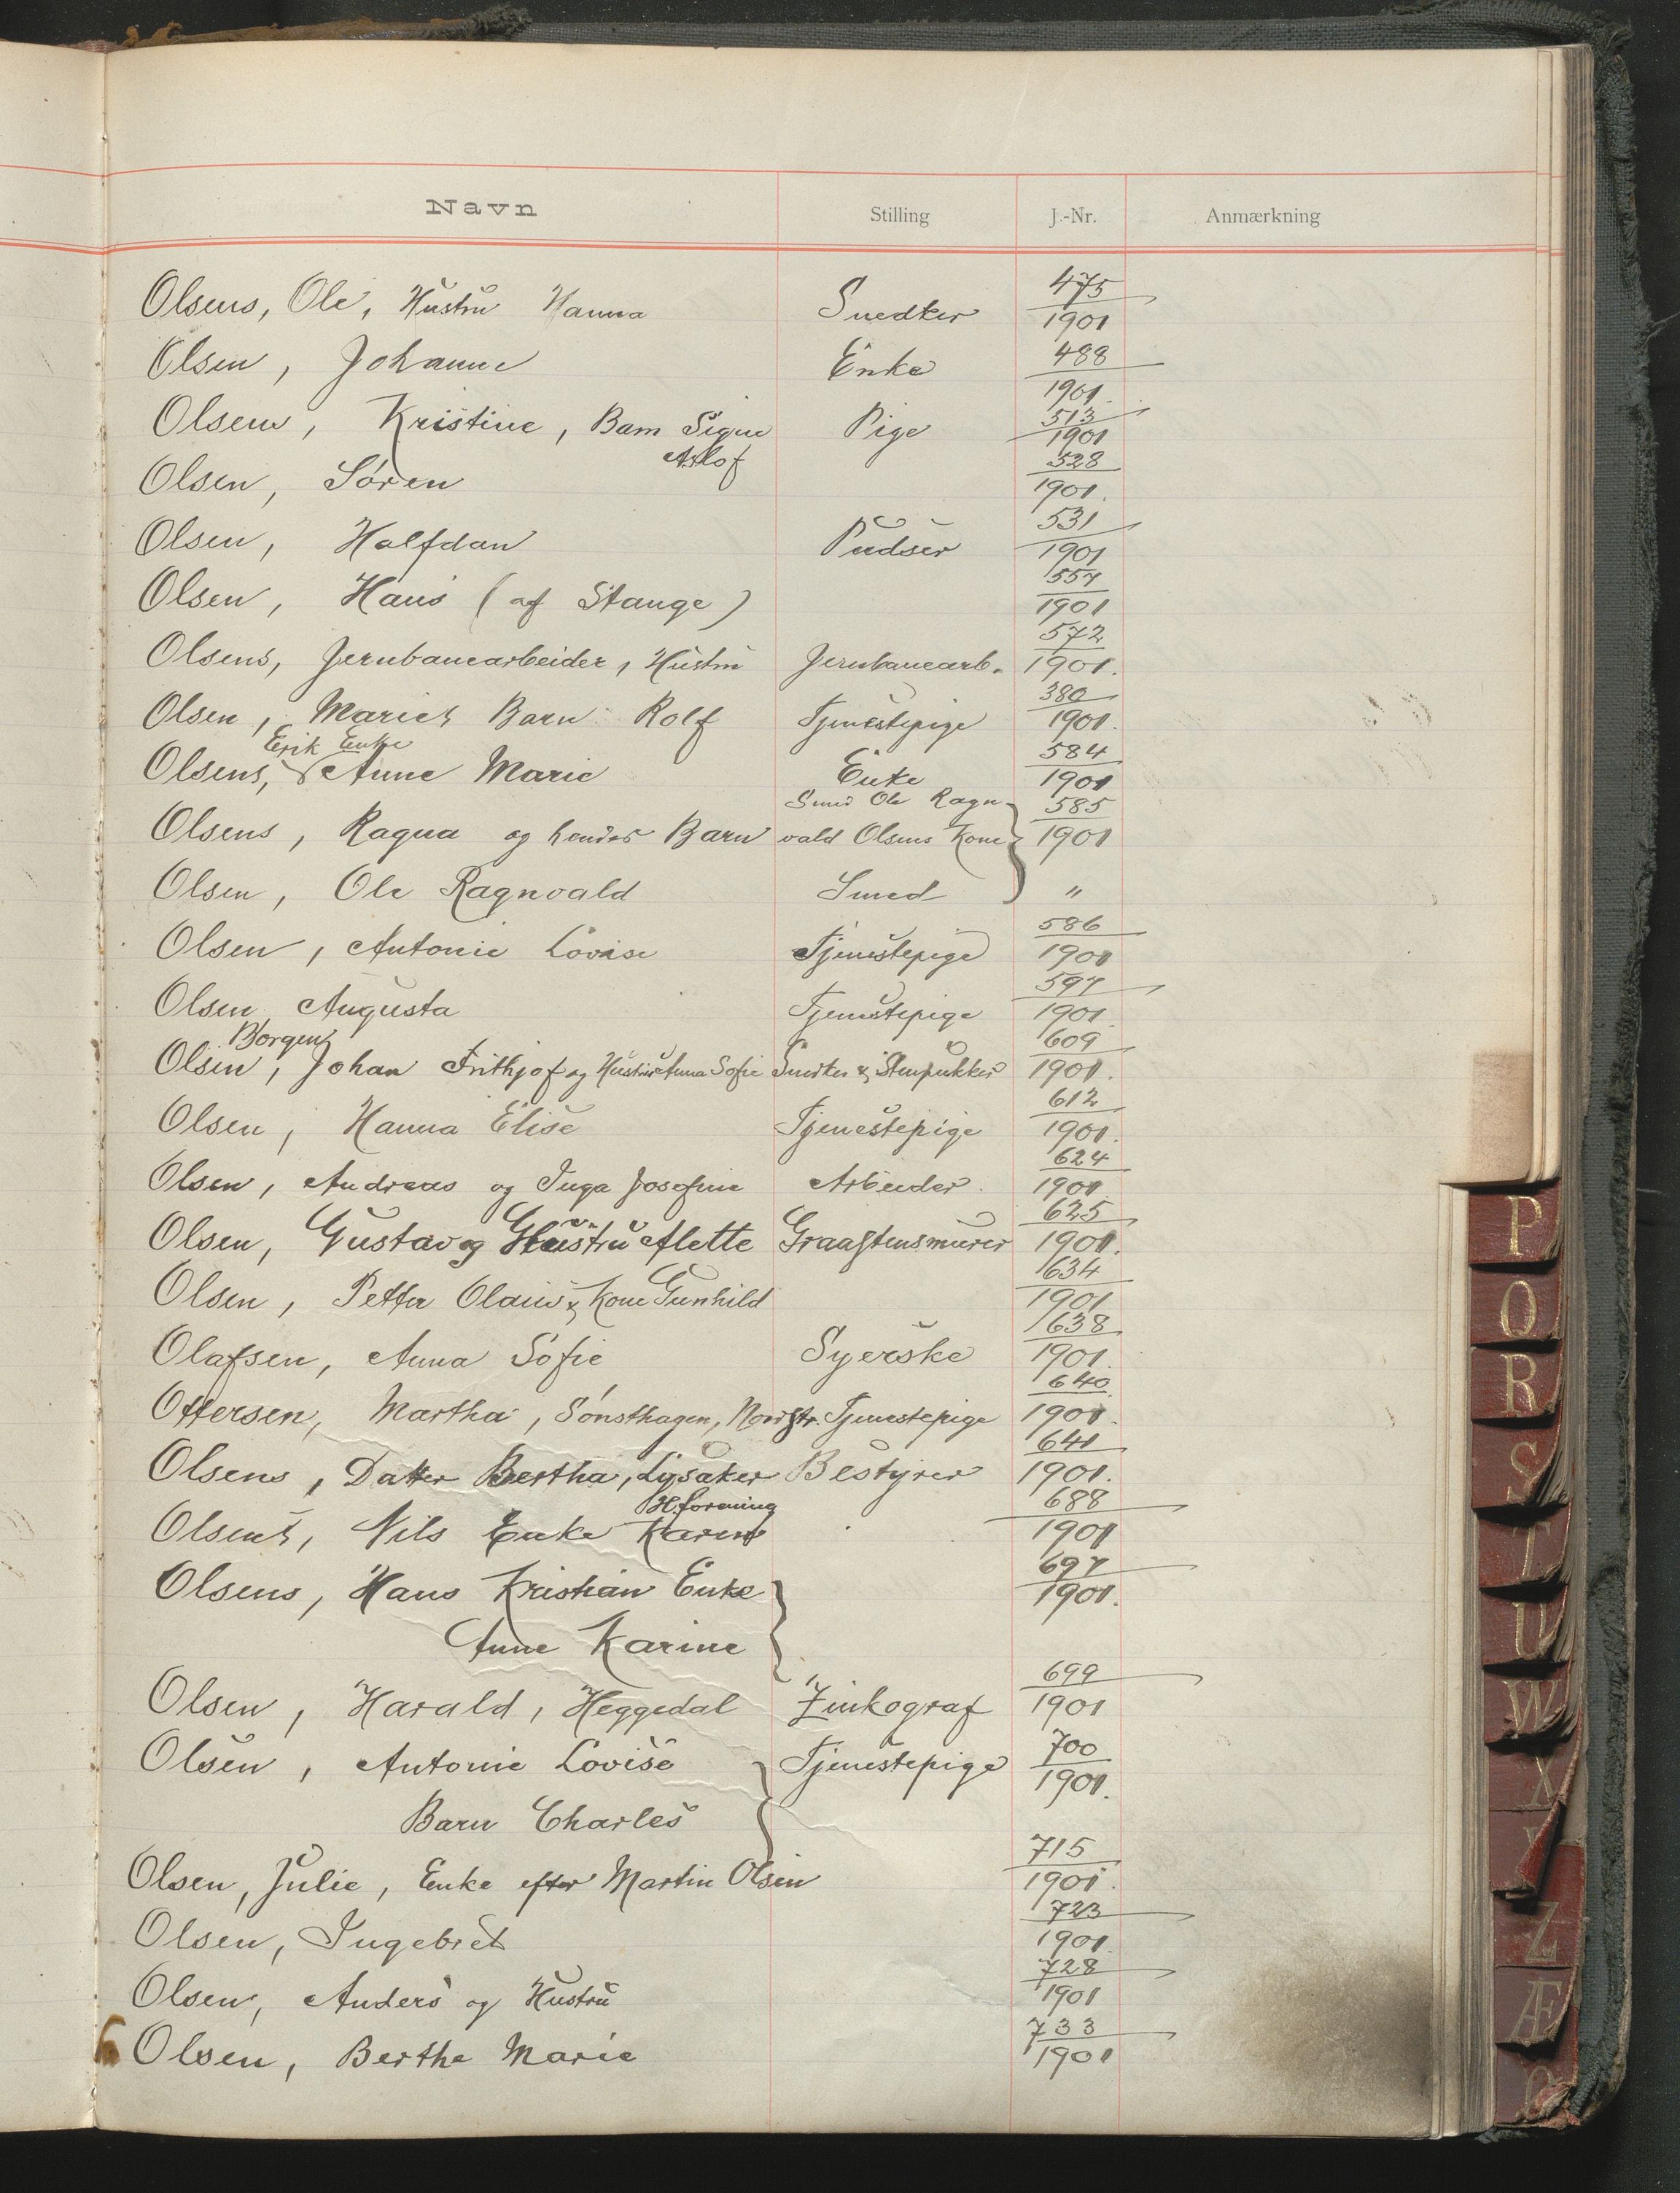 Navn Stilling J.-Nr. Anmærkning
Olsens, Ole, Hustru Hanna Snedker 475/1901
Olsen, Johanne Enke 488/1901.
Olsen, Kristine, Barn Signe Pige 513/1901
Olsen, Sören 528/1901.
Olsen, Halfdan Pudser 531/1901
Olsen, Hans (af Stange) 557/1901
Olsens, Jernbanearbeider, Hustru Jernbanearb. 572/1901.
Olsen, Maries Barn Rolf Tjenestepige 380/1901.
Erik Enke
Olsens, Anne Marie Enke 584/1901
Smed Ole Ragn-
Olsens, Ragna og hendes Barn vald Olsens Kone 585/1901
Olsen, Ole Ragnvald Smed "
Olsen, Antonie Lovise Tjenestepige 586/1901
Olsen Augusta Tjenestepige 597/1901.
Borgen
Olsen, Johan Frithjof og Hustru Anna Sofie Snedker & Stenpukker 609/1901.
Olsen, Hanna Elise Tjenestepige 612/1901.
Olsen, Andreas og Inga Josefine Arbeider. 624/1901.
Olsen, Gustav og Hustru Alette Graastensmurer 625/1901.
Olsen, Petter Olaus & Kone Gunhild 634/1901
Olafsen, Anna Sofie Syerske 638/1901.
Ottersen, Martha, Sönsthagen, Nordstr. Tjenestepige 640/1901.
Olsens, Datter Bertha, Lysaker Bestyrer 641/1901.
H.forening
Olsens, Nils Enke Karen 688/1901
Olsens, Hans Kristian Enke 697/1901.
Anne Karine
Olsen, Harald, Heggedal Zinkograf 699/1901
Olsen, Antonie Lovise Tjenestepige 700/1901.
Barn Charles
Olsen, Julie, Enke efter Martin Olsen 715/1901.
Olsen, Ingebret 723/1901.
Olsen, Anders og Hustru 728/1901
Olsen, Berthe Marie 733/1901
P
O
R
S
T
U
W
X
Z
Æ